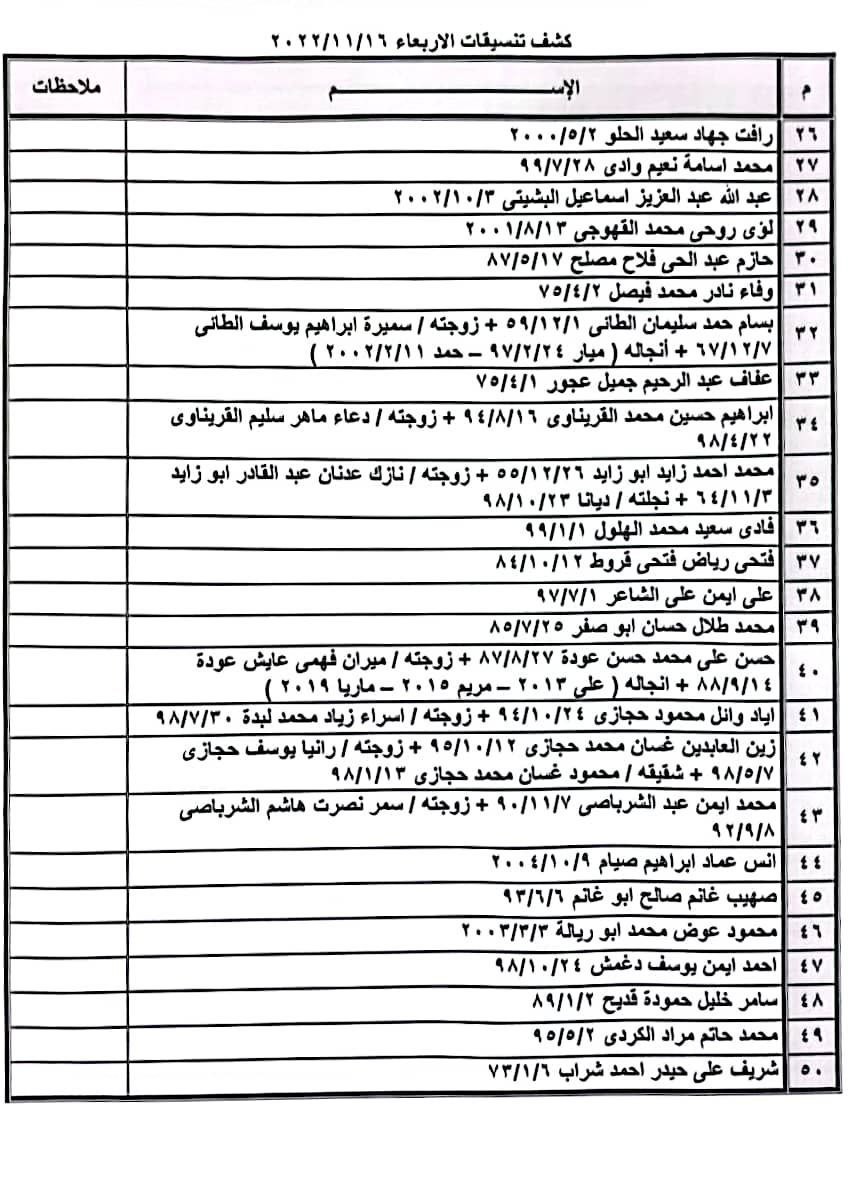 كشف تنسيقات الاربعاء ٢٠٢٢/١١/١٦
م الإســـــــــم ملاحظات
٢٦ رافت جهاد سعيد الحلو ٢٠٠٠/٥/٢
٢٧ محمد اسامة نعيم وادى ٩٩/٧/٢٨
٢٨ عبد الله عبد العزيز اسماعيل البشيتى ٢٠٠٢/١٠/٣
٢٩ لؤى روحى محمد القهوجي ٢٠٠١/٨/١٣
٣٠ حازم عبد الحى فلاح مصلح ٨٧/٥/١٧
٣١ وفاء نادر محمد فيصل ٧٥/٤/٢
٣٢ بسام حمد سليمان الطائى ٥٩/١٢/١ + زوجته / سميرة ابراهيم يوسف الطائى
٦٧/١٢/٧ + أنجاله ( ميار ٩٧/٢/٢٤ – حمد ٢٠٠٢/٢/١١ )
٣٣ عفاف عبد الرحيم جميل عجور ٧٥/٤/١
٣٤ ابراهيم حسين محمد القريناوى ٩٤/٨/١٦ + زوجته / دعاء ماهر سليم القريناوى
٩٨/٤/٢٢
٣٥ محمد احمد زايد ابو زايد ٥٥/١٢/٢٦ + زوجته / نازك عدنان عبد القادر ابو زايد
٦٤/١١/٣ + نجلته / ديانا ٩٨/١٠/٢٣
٣٦ فادى سعيد محمد الهلول ٩٩/١/١
٣٧ فتحى رياض فتحى قروط ٨٤/١٠/١٢
٣٨ على ايمن على الشاعر ٩٧/٧/١
٣٩ محمد طلال حسان ابو صفر ٨٥/٧/٢٥
٤٠ حسن على محمد حسن عودة ٨٧/٨/٢٧ + زوجته / ميران فهمى عايش عودة
٨٨/٩/١٤ + انجاله ( على ٢٠١٣ – مريم ٢٠١٥ – ماريا ٢٠١٩ )
٤١ اياد وائل محمود حجازى ٩٤/١٠/٢٤ + زوجته / اسراء زياد محمد لبدة ٩٨/٧/٣٠
٤٢ زين العابدين غسان محمد حجازى ٩٥/١٠/١٢ + زوجته / رانيا يوسف حجازى
٩٨/٥/٧ + شقيقه / محمود غسان محمد حجازى ٩٨/١/١٣
٤٣ محمد ايمن عبد الشرباصى ٩٠/١١/٧ + زوجته / سمر نصرت هاشم الشرباصى
٩٢/٩/٨
٤٤ انس عماد ابراهيم صيام ٢٠٠٤/١٠/٩
٤٥ صهيب غانم صالح ابو غانم ٩٣/٦/٦
٤٦ محمود عوض محمد ابو ريالة ٢٠٠٣/٣/٣
٤٧ احمد ايمن يوسف دغمش ٩٨/١٠/٢٤
٤٨ سامر خليل حمودة قديح ٨٩/١/٢
٤٩ محمد حاتم مراد الكردى ٩٥/٥/٢
٥٠ شريف على حيدر احمد شراب ٧٣/١/٦